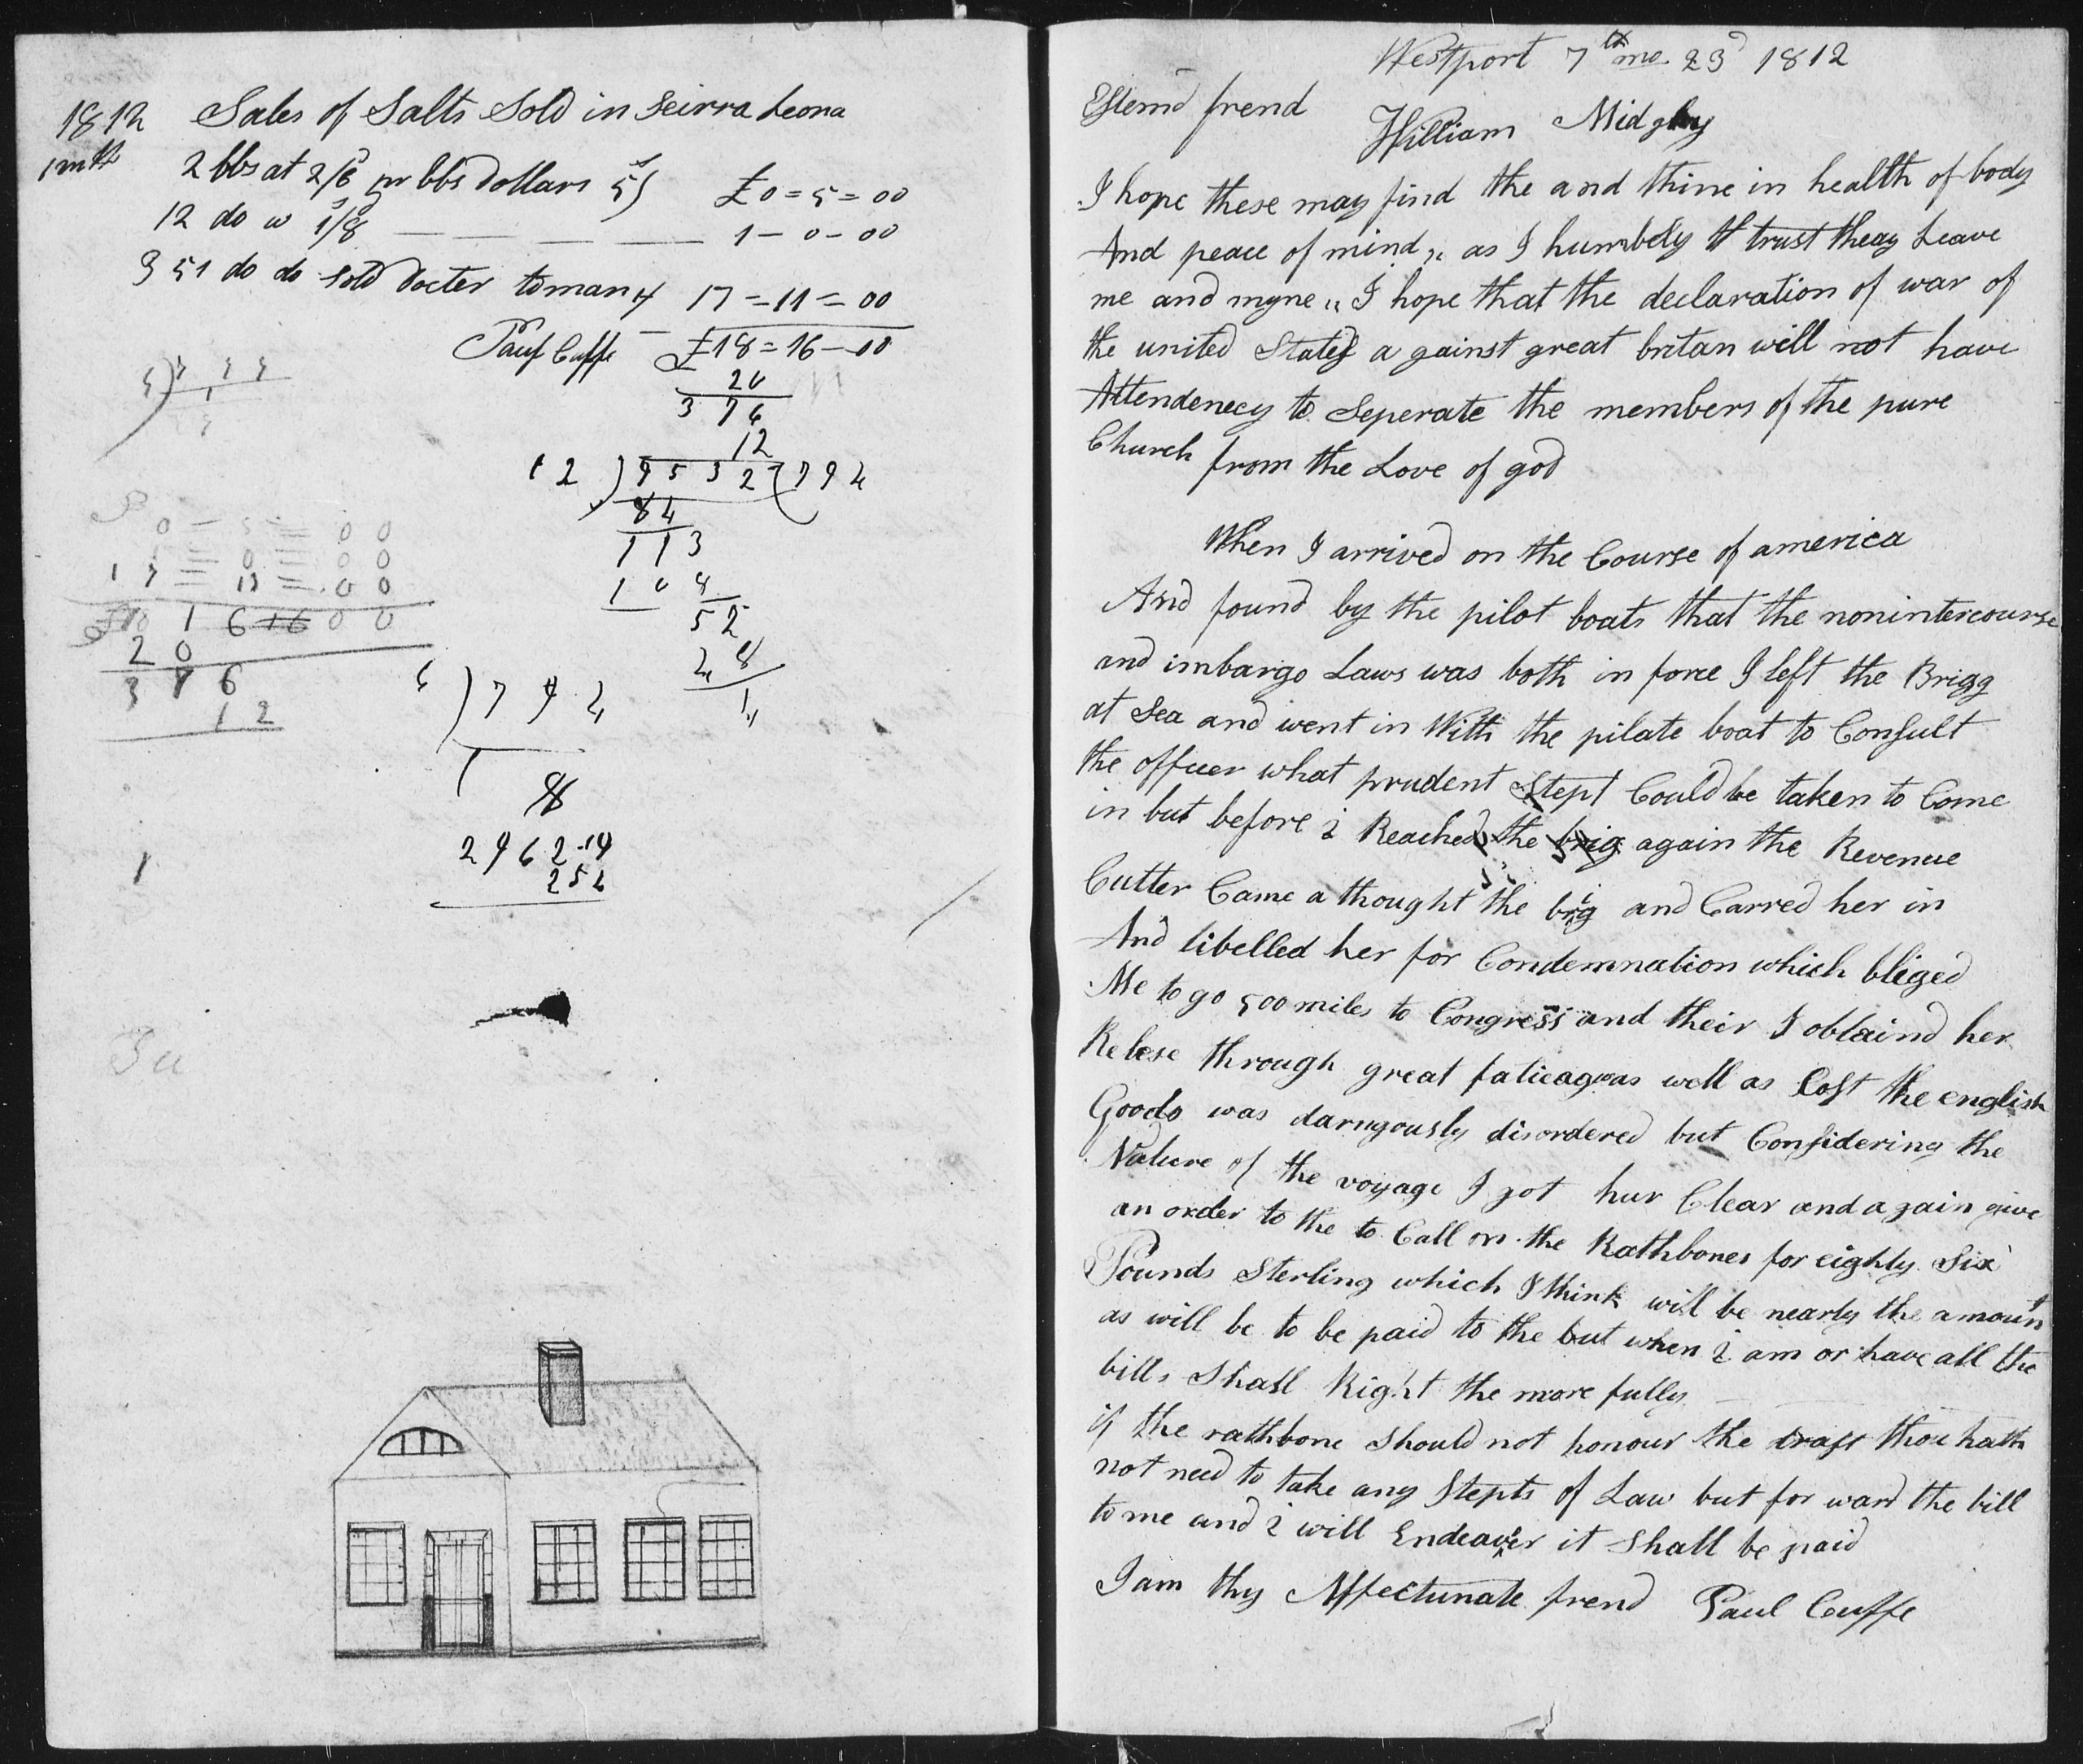 1812 Sales of Salts Sold in Seirra Leona
1 mth 2 bbs at 2/6 pr bbs dollars 5/ £0=5=00
12 do a 1/8 — — — — 1-0-00
351 do do sold docter 17=11=00
Paul Cuffe £18=16-00
20
376
12
12 ) 9532 ( 794
84
113
108
52
48
4
0 = 5 = 00
1 = 0 = 00
17 = 11 = 00
£18 16 16 00
20
376
12
) 794
1
Westport 7th mo. 23d 1812
Estemd frend
William Midgley
I hope these may find the and thine in health of body
And peace of mind,, as I humbely trust theay Leave
me and myne,, I hope that the declaration of war of
the united States a gainst great britan will not have
Attendenecy to Seperate the members of the pure
Church from the Love of god
When I arrived on the Course of america
And found by the pilot boats that the nonintercourse
and imbargo Laws was both in force I left the Brigg
at Sea and went in With the pilate boat to Consult
the officer what prudent Stept Could be taken to Come
in but before i Reached the brig again the Revenue
Cutter Came a thought the brig and Carred her in
And libelled her for Condemnation which bliged
Me to go 500 miles to Congress and their I obtaind her
Relese through great as well as Cost the english
Goods was darngously disordered but Considering the
Nature of the voyage I got hur Clear and again give
an order to the to Call on the Rathbones for eighty Six
Pounds Sterling which I think will be nearly the amount
as will be to be paid to the but when i am or have all the
bills Shall Right the more fully
if the rathbone Should not honour the draft thou hath
not need to take any Stepts of Law but for ward the bill
to me and i will Endeaver it Shall be paid
I am thy Affectunate frend Paul Cuffe